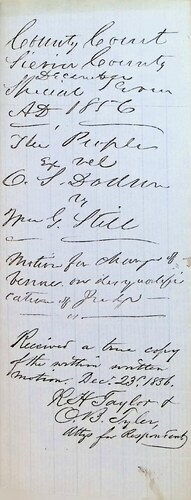 County Court
Sierra County
December
Special Term
AD 1856
The People
Ex rel
O. S. Dodson
vs
Wm G. Still
Motion for change of
Venue on disqualifi-
cation of Judge
Received a true copy
of the within written
motion. Decr. 23rd 1856.
R. H. Taylor &
O. B. Tyler,
Attys for Respondent